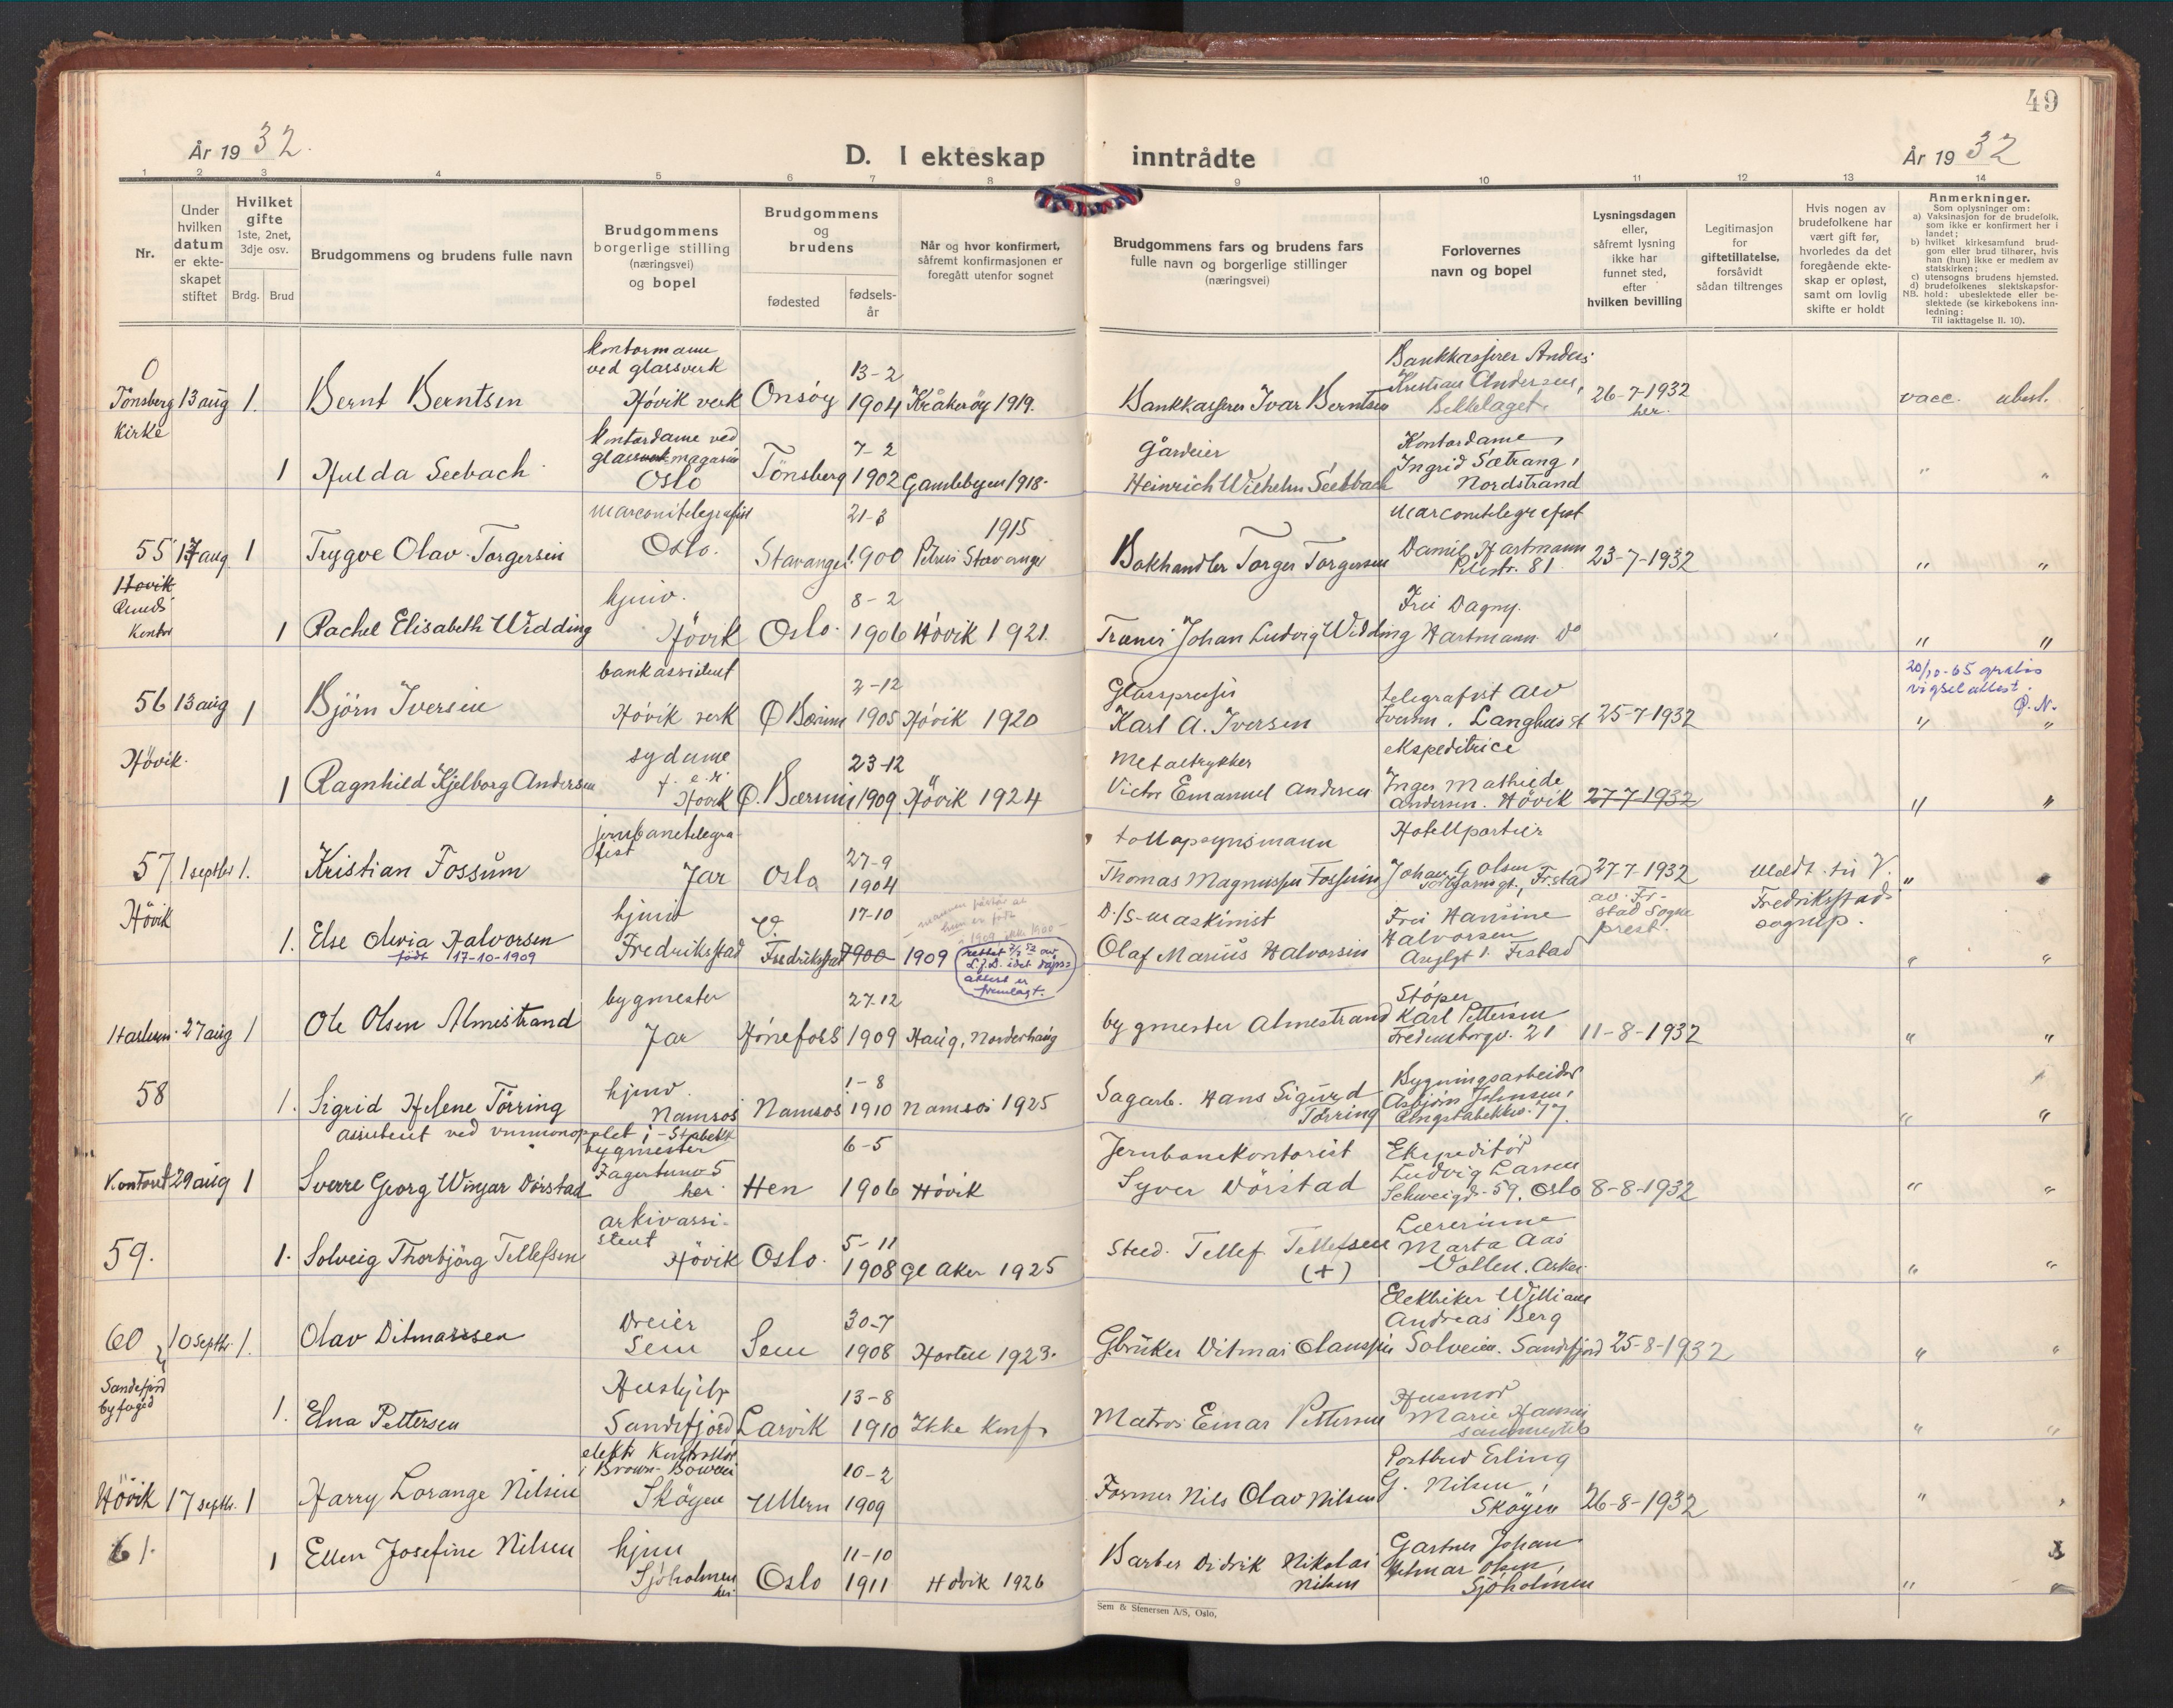 49
År 1932.
D. I ekteskap inntrådte
År 1932
1 2 3 4 5 6 7 8 9 10 11 12 13 14
Nr.
Under
hvilken
datum
er ekte-
skapet
stiftet
Hvilket
gifte
1ste, 2net,
3dje osv.
Brdg. Brud
Brudgommens og brudens fulle navn
Brudgommens
borgerlige stilling
(næringsvei)
og bopel
Brudgommens
og
brudens
fødested
fødsels-
år
Når og hvor konfirmert,
såfremt konfirmasjonen er
foregått utenfor sognet
Brudgommens fars og brudens fars
fulle navn og borgerlige stillinger
(næringsvei)
Forlovernes
navn og bopel
Lysningsdagen
eller,
såfremt lysning
ikke har
funnet sted,
efter
hvilken bevilling
Legitimasjon
for
giftetillatelse,
forsåvidt
sådan tiltrenges
Hvis nogen av
brudefolkene har
vært gift før,
hvorledes da det
foregående ekte-
skap er opløst,
samt om lovlig
skifte er holdt
Anmerkninger.
Som oplysninger om:
a) Vaksinasjon for de brudefolk,
som ikke er konfirmert her i
landet;
b) hvilket kirkesamfund brud-
gom eller brud tilhører, hvis
han (hun) ikke er medlem av
statskirken;
c) utensogns brudens hjemsted.
d) brudefolkenes slektskapsfor-
NB. hold: ubeslektede eller be-
slektede (se kirkebokens inn-
ledning:
Til iakttagelse II. 10).
0
Tönsberg kirke
13 aug 1.
Bernt Berntsen
kontormann
ved glassverk
Hövik verk
Onsöy
13-2
1904
Kråkeröy 1919.
Bankkasserer Ivar Berntsen
Bankkasserer Anders
Kristian Andersen,
Bekkelaget.
26-7-1932
her.
vacc. ubesl.
1 Hulda Seebach
kontordame ved
glassmagasin
Oslo
Tönsberg
7-2
1902
Gamlebyen 1918.
Gårdeier
Heinrich Wilhelm Seebach
Kontordame,
Ingrid Sætrang,
Nordstrand
" "
55 17 aug 1
Trygve Olav Torgersen
Marconitelegrafist
Oslo.
Stavanger
21-3
1900
1915
Petrus Stavanger
Bokhandler Torger Torgersen
Marconitelegrafist
Daniel Hartmann
Pilestr. 81
23-7-1932
" "
Hövik
Kontor
1 Rachel Elisabeth Widding
hjmv.
Hövik
Oslo.
8-2
1906
Hövik 1921.
Johan Ludvig Widding
Frú Dagny
Hartmann Do
" "
56 13 aug 1
Björn Iversen
bankassistent
Hövik verk
Ö Bærum
2-12
1905
Hövik 1920
Karl A. Iversen
telegrafist Alv
Iversen. Langhus st
25-7-1932
20/10-65 gratis
vigselattest.
" "
Hövik.
1 Ragnhild Kjelborg Andersen
sydame
Hövik
Ö. Bærum
23-12
1909.
Hövik 1924
Metaltrykker
Victor Emanuel Andersen
ekspeditrice
Inger Mathilde
Andersen. Hövik
27-7-1932
" "
57 1 septbr 1.
Kristian Fossum
jernbanetelegra-
fist
Jar
Oslo
27-9
1904
tollopsynsmann
Thomas Magnussen Fossum
Hotellportier
Johan G Olsen
F.stad
27-7-1932
av Fr-
stad Sogne
prest.
meldt til V.
Fredriksstads
sognep.
"
Hövik
1. Else Olivia Halvorsen
født 17-10-1909
hjmv
Fredriksstad
Fredriksstad
17-10
1900 1909
rettet 7/2 52 av
L.J.D. idet dåps-
attest er
fremlagt.
D/S-maskinist
Olaf Marius Halvorsen
Frú Hansine
Halvorsen
Frstad
" "
Haslum 27 aug 1
Ole Olsen Almestrand
bygmester
Jar
Hönefoss
27.12
1909
Haug, Norderhaug
bygmester Almestrand
Stöper
Karl Pettersen
Fredensborgv. 21
11-8-1932
" "
58
1. Sigrid Helene Törring
hjmv.
Namsos
Namsos
1-8
1910
Namsos 1925
Sagarb. Hans Sigurd
Törring
Bygningsarbeider
Asbjörn Johnsen,
Ringstabekkv. 77.
" "
assistent ved vinmonopolet i - Stabekk
Kontoret 29 aug 1
Sverre Georg Winjar Dörstad
bygmester
Fagertunv 5
her
Hen
6-5
1906
Hövik
Jernbanekontorist
Syver Dörstad
Ekspeditör
Ludvig Larsen
Schweigds. 59. Oslo
8-8-1932
" "
59.
1. Solveig Thorbjörg Tellefsen
arkivassi-
stent
Hövik
Oslo.
5-11
1908
Gl Aker 1925
Sted. Tellef Tellefsen
(+)
Lærerinne
Marta Aas
Vollen. Asker
" "
60 10 septbr. 1.
Olav Ditmarssen
Dreier
Sem
Sem
30-7
1908
Horten 1923.
Gbruker Ditmar Olaussen
Elektriker William
Andreas Berg
Solveien. Sandefjord
25-8-1932
" "
Sandefjord
byfoged
1. Elna Pettersen
Hushjelp
Sandefjord
Larvik
13-8
1910
Ikke konf.
Matros Einar Pettersen
Husmor
Marie Hansen
sammesteds
" "
Hövik 17 septbr. 1
Harry Lorange Nilsen
elektr kontrollör
i Brown-Boveri
Sköyen
Ullern
10-2
1909
Former Nils Olav Nilsen
Postbud Erling
G. Nilsen,
Sköyen
26-8-1932
"
61.
1 Ellen Josefine Nilsen
hjmv
Sjöholmen
her
Oslo
11-10
1911
Hövik 1926
Barber Didrik Nikolai
Nilsen
Gartner Johan
Hilmar Olsen,
Sjöholmen
" "
Sem & Stenersen A/S, Oslo,